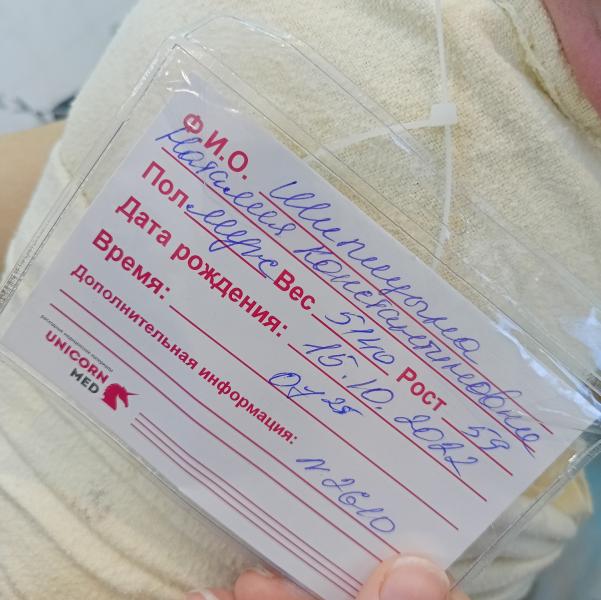 Ф.И.О. Шипицына
Наталия Константиновна
Пол муж Вес 5140 Рост 59
Дата рождения: 15.10.2022
Время: 0725
Дополнительная информация:
N2610
UNICORN
MED